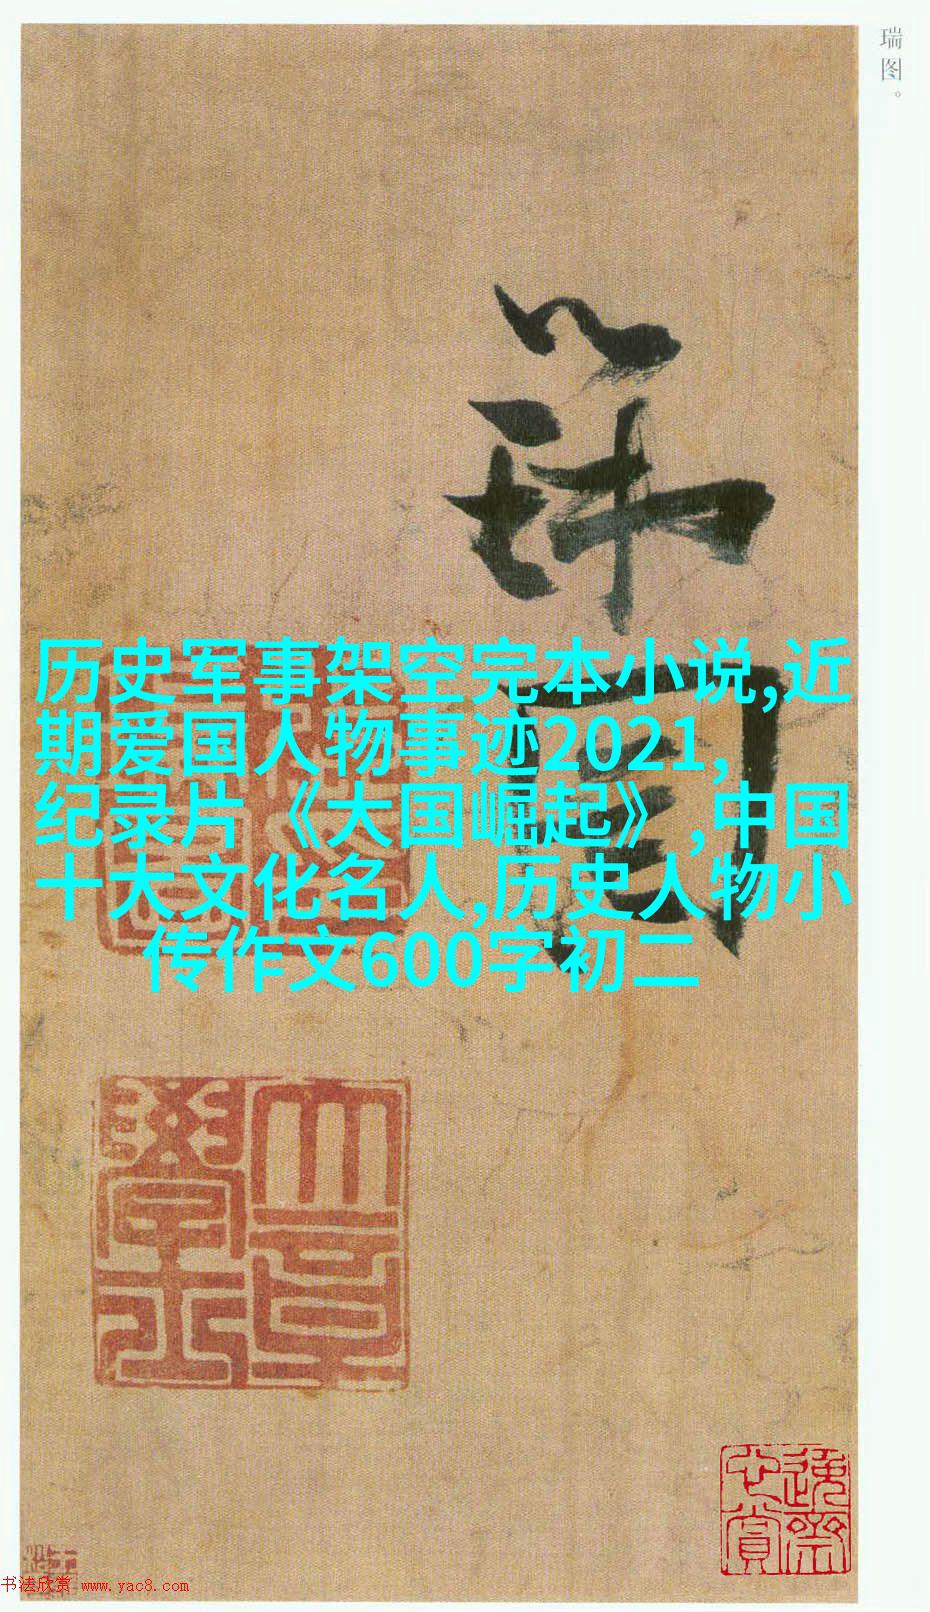 瑞图。
历史军事架空完本小说,近
期爱国人物事迹2021,
纪录片《大国崛起》,中国
十大文化名人,历史人物小
传作文600字初二
书法欣赏 www.yac8.com